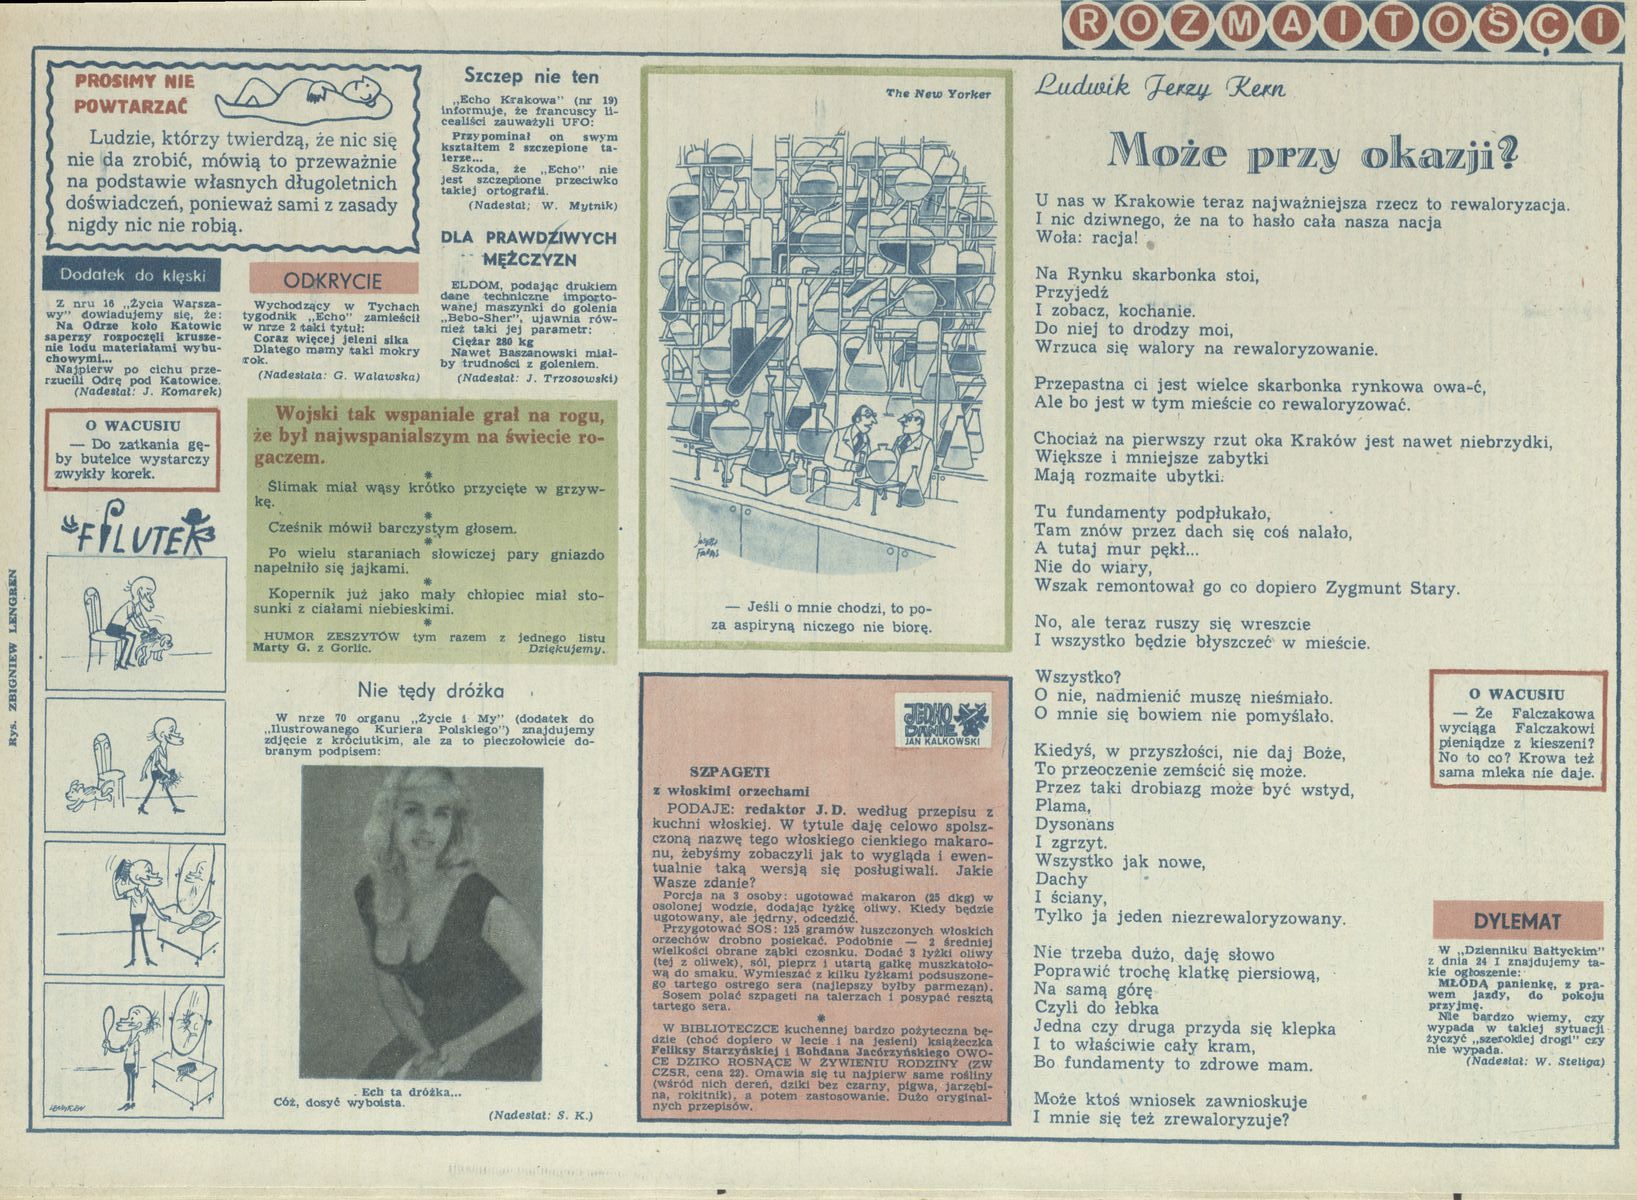 ROZMAITOŚCI
PROSIMY NIE
POWTARZAĆ
Ludzie, którzy twierdzą, że nic się
nie da zrobić, mówią to przeważnie
na podstawie własnych długoletnich
doświadczeń, ponieważ sami z zasady
nigdy nic nie robią.
Dodatek do klęski
Z nru 16 „Życia Warsza-
wy” dowiadujemy się, że:
Na Odrze koło Katowic
saperzy rozpoczęli krusze-
nie lodu materiałami wybu-
chowymi...
Najpierw po cichu prze-
rzucili Odrę pod Katowice.
(Nadesłał: J. Komarek)
ODKRYCIE
Wychodzący w Tychach
tygodnik „Echo” zamieścił
w nrze 2 taki tytuł:
Coraz więcej jeleni sika
Dlatego mamy taki mokry
rok.
(Nadesłała: G. Walawska)
Szczep nie ten
„Echo Krakowa” (nr 19)
informuje, że francuscy li-
cealiści zauważyli UFO:
Przypominał on swym
kształtem 2 szczepione ta-
lerze...
Szkoda, że „Echo” nie
jest szczepione przeciwko
takiej ortografii.
(Nadesłał: W. Mytnik)
DLA PRAWDZIWYCH
MĘŻCZYZN
ELDOM, podając drukiem
dane techniczne importo-
wanej maszynki do golenia
„Bebo-Sher”, ujawnia rów-
nież taki jej parametr:
Ciężar 280 kg
Nawet Baszanowski miał-
by trudności z goleniem.
(Nadesłał: J. Trzosowski)
O WACUSIU
— Do zatkania gę-
by butelce wystarczy
zwykły korek.
Wojski tak wspaniale grał na rogu,
że był najwspanialszym na świecie ro-
gaczem.
*
Ślimak miał wąsy krótko przycięte w grzyw-
kę.
*
Cześnik mówił barczystym głosem.
*
Po wielu staraniach słowiczej pary gniazdo
napełniło się jajkami.
*
Kopernik już jako mały chłopiec miał sto-
sunki z ciałami niebieskimi.
*
HUMOR ZESZYTÓW tym razem z jednego listu
Marty G. z Gorlic. Dziękujemy.
FILUTEK
Rys. ZBIGNIEW LENGREN
LENGREN
Nie tędy dróżka
W nrze 70 organu „Życie i My” (dodatek do
„Ilustrowanego Kuriera Polskiego”) znajdujemy
zdjęcie z króciutkim, ale za to pieczołowicie do-
branym podpisem:
Ech ta dróżka...
Cóż, dosyć wyboista.
(Nadesłał: S. K.)
The New Yorker
JOSEPH
FARRIS
— Jeśli o mnie chodzi, to po-
za aspiryną niczego nie biorę.
JEDNO
DANIE
JAN KALKOWSKI
SZPAGETI
z włoskimi orzechami
PODAJE: redaktor J. D. według przepisu z
kuchni włoskiej. W tytule daję celowo spolsz-
czoną nazwę tego włoskiego cienkiego makaro-
nu, żebyśmy zobaczyli jak to wygląda i ewen-
tualnie taką wersją się posługiwali. Jakie
Wasze zdanie?
Porcja na 3 osoby: ugotować makaron (25 dkg) w
osolonej wodzie, dodając łyżkę oliwy. Kiedy będzie
ugotowany, ale jędrny, odcedzić.
Przygotować SOS: 125 gramów łuszczonych włoskich
orzechów drobno posiekać. Podobnie — 2 średniej
wielkości obrane ząbki czosnku. Dodać 3 łyżki oliwy
(tej z oliwek), sól, pieprz i utartą gałkę muszkatoło-
wą do smaku. Wymieszać z kilku łyżkami podsuszone-
go tartego ostrego sera (najlepszy byłby parmezan).
Sosem polać szpageti na talerzach i posypać resztą
tartego sera.
*
W BIBLIOTECZCE kuchennej bardzo pożyteczna bę-
dzie (choć dopiero w lecie i na jesieni) książeczka
Feliksy Starzyńskiej i Bohdana Jacórzyńskiego OWO-
CE DZIKO ROSNĄCE W ŻYWIENIU RODZINY (ZW
CZSR, cena 22). Omawia się tu najpierw same rośliny
(wśród nich dereń, dziki bez czarny, pigwa, jarzębi-
na, rokitnik), a potem zastosowanie. Dużo oryginal-
nych przepisów.
Ludwik Jerzy Kern
Może przy okazji?
U nas w Krakowie teraz najważniejsza rzecz to rewaloryzacja.
I nic dziwnego, że na to hasło cała nasza nacja
Woła: racja!
Na Rynku skarbonka stoi,
Przyjedź
I zobacz, kochanie.
Do niej to drodzy moi,
Wrzuca się walory na rewaloryzowanie.
Przepastna ci jest wielce skarbonka rynkowa owa-ć,
Ale bo jest w tym mieście co rewaloryzować.
Chociaż na pierwszy rzut oka Kraków jest nawet niebrzydki,
Większe i mniejsze zabytki
Mają rozmaite ubytki.
Tu fundamenty podpłukało,
Tam znów przez dach się coś nalało,
A tutaj mur pękł...
Nie do wiary,
Wszak remontował go co dopiero Zygmunt Stary.
No, ale teraz ruszy się wreszcie
I wszystko będzie błyszczeć w mieście.
Wszystko?
O nie, nadmienić muszę nieśmiało.
O mnie się bowiem nie pomyślało.
Kiedyś, w przyszłości, nie daj Boże,
To przeoczenie zemścić się może.
Przez taki drobiazg może być wstyd,
Plama,
Dysonans
I zgrzyt.
Wszystko jak nowe,
Dachy
I ściany,
Tylko ja jeden niezrewaloryzowany.
Nie trzeba dużo, daję słowo
Poprawić trochę klatkę piersiową,
Na samą górę
Czyli do łebka
Jedna czy druga przyda się klepka
I to właściwie cały kram,
Bo fundamenty to zdrowe mam.
Może ktoś wniosek zawnioskuje
I mnie się też zrewaloryzuje?
O WACUSIU
— Że Falczakowa
wyciąga Falczakowi
pieniądze z kieszeni?
No to co? Krowa też
sama mleka nie daje.
DYLEMAT
W „Dzienniku Bałtyckim”
z dnia 24 I znajdujemy ta-
kie ogłoszenie:
MŁODĄ panienkę, z pra-
wem jazdy, do pokoju
przyjmę.
Nie bardzo wiemy, czy
wypada w takiej sytuacji
życzyć „szerokiej drogi” czy
nie wypada.
(Nadesłał: W. Steliga)